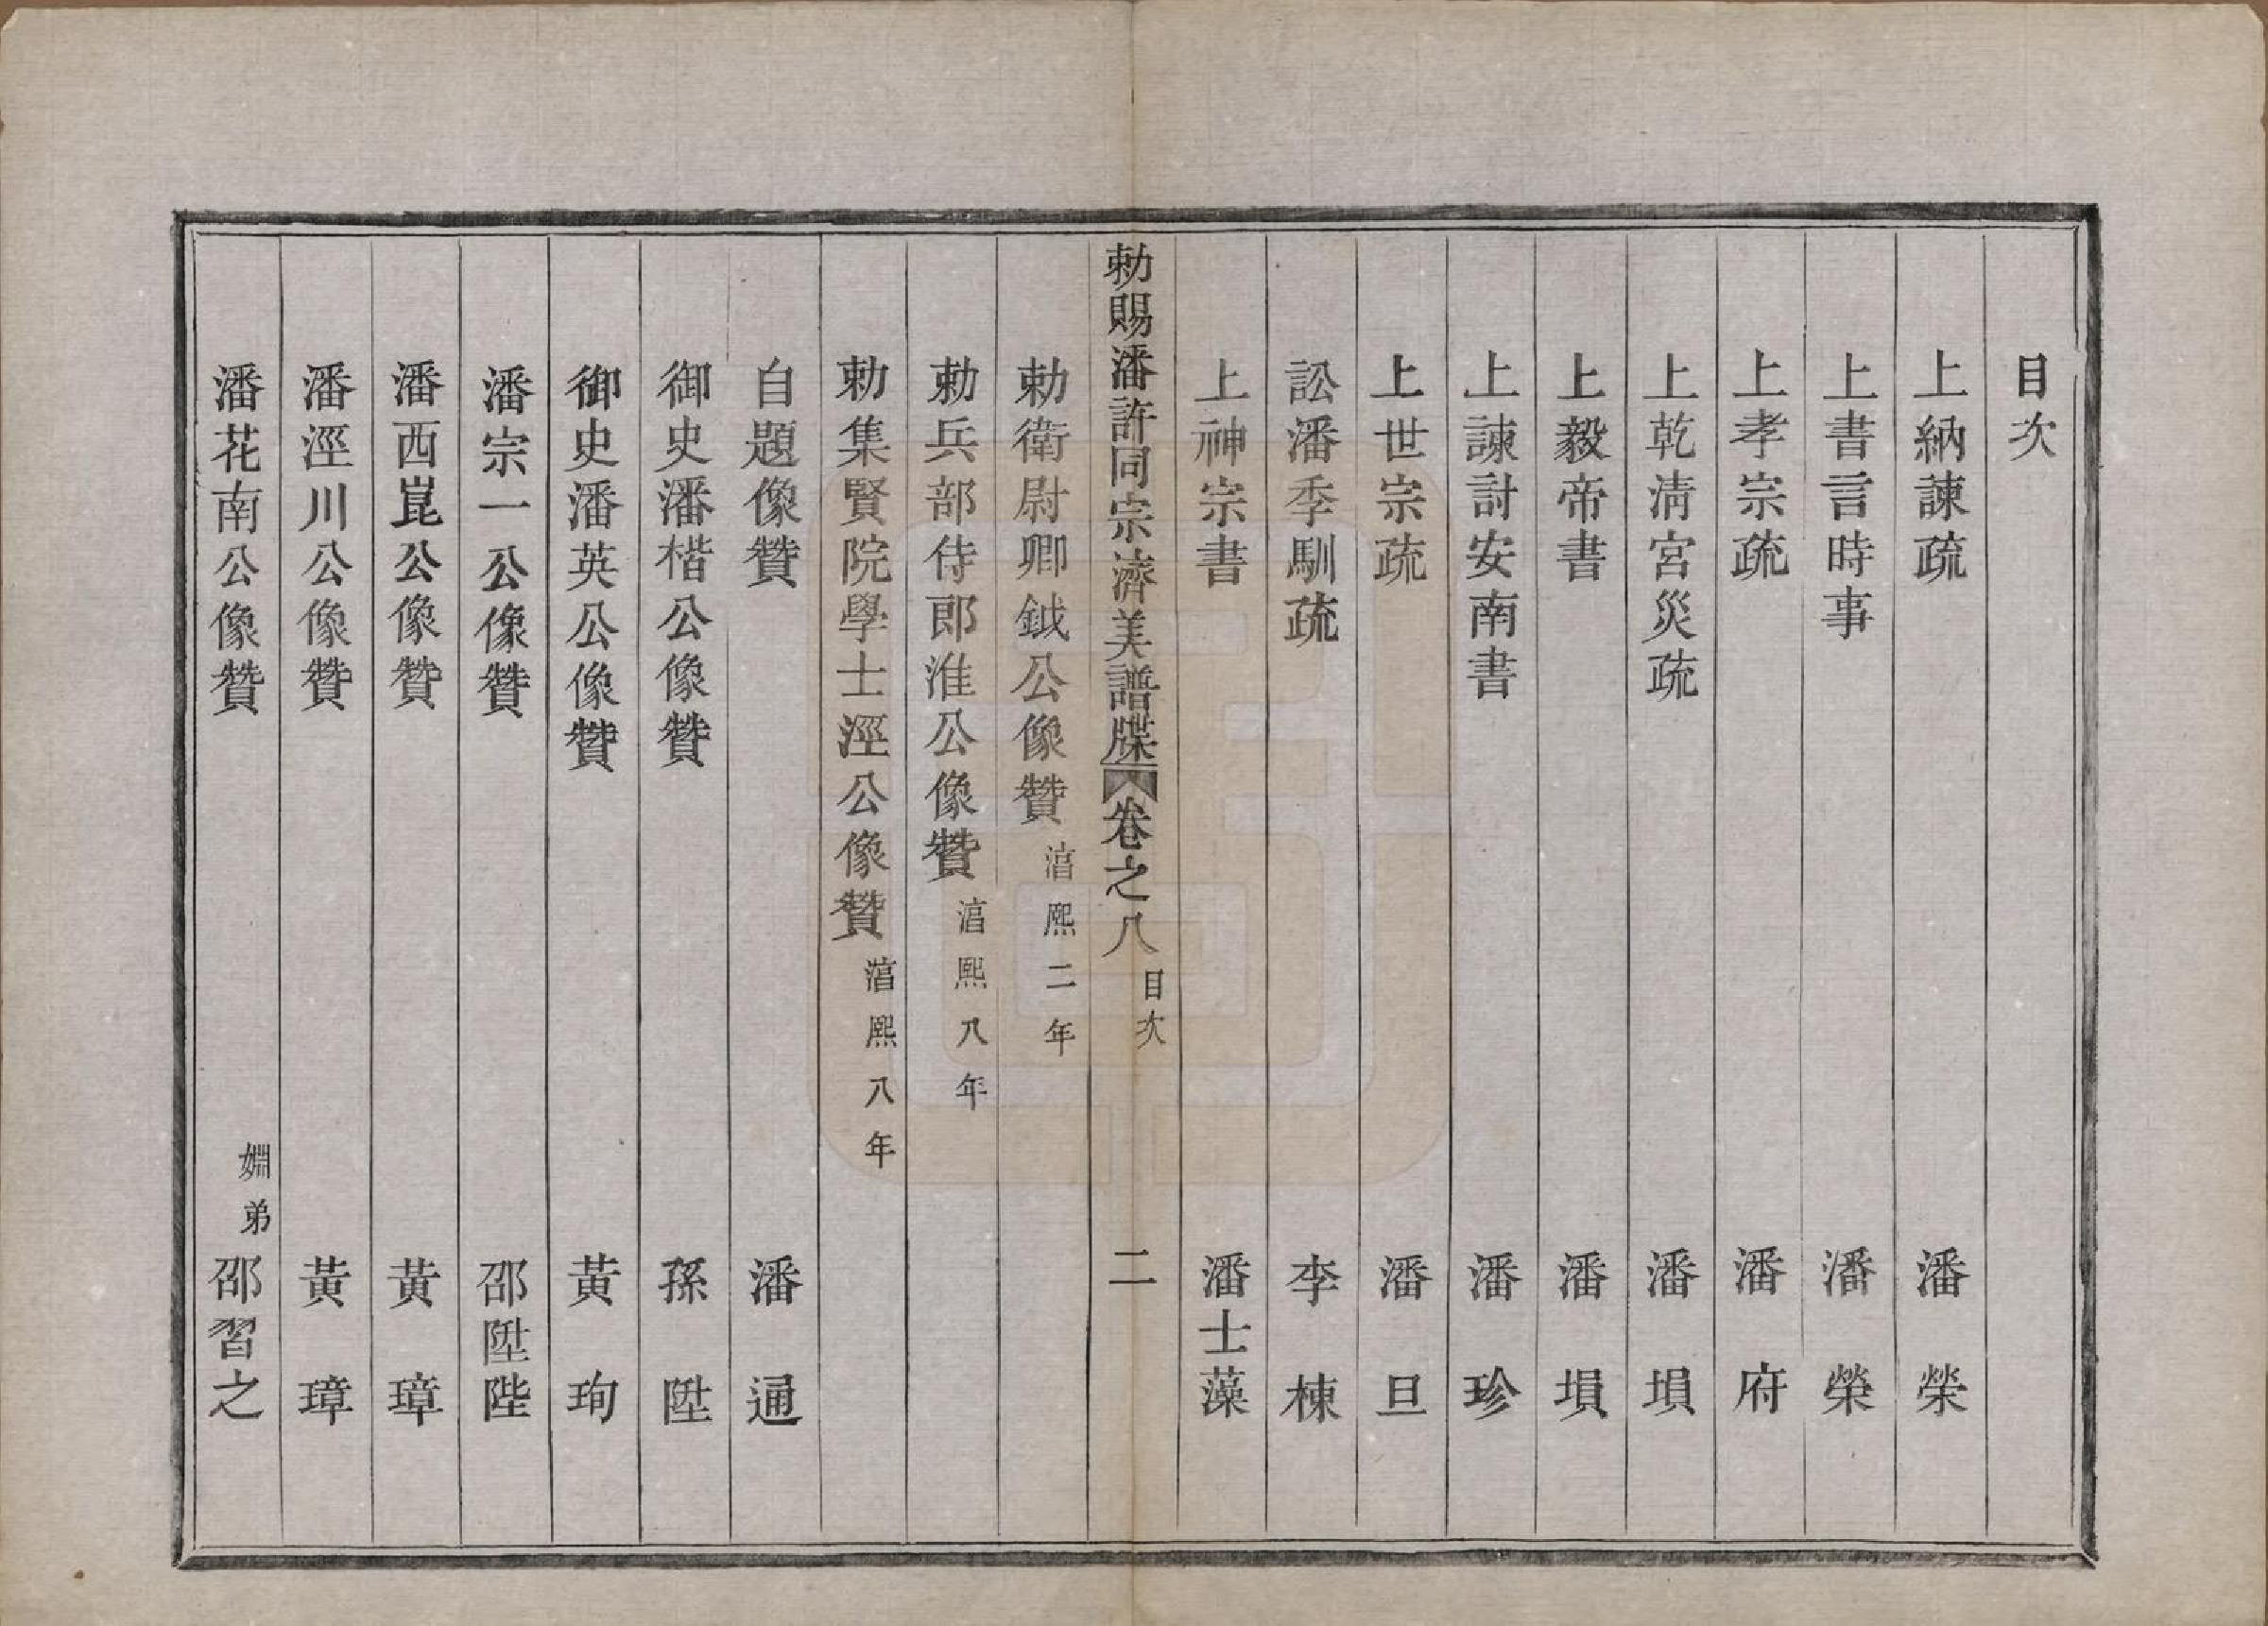 目次
上納諫疏 潘榮
上書言時事 潘榮
上孝宗疏 潘府
上乾淸宮災疏 潘塤
上毅帝書 潘塤
上諫討安南書 潘珍
上世宗疏 潘旦
訟潘季馴疏 李棟
上神宗書 潘士藻
勅賜潘許同宗濟美譜牒 卷之八 目次 二
勅衛尉卿鉞公像贊 淳熙二年
勅兵部侍郎淮公像贊 淳熙八年
勅集賢院學士淫公像贊 淳熙八年
自題像贊 潘通
御史潘楷公像贊 孫陞
御史潘英公像贊 黃珣
潘宗一公像贊 邵陞陛
潘西崑公像贊 黃璋
潘涇川公像贊 黃璋
潘花南公像贊 姻弟邵習之